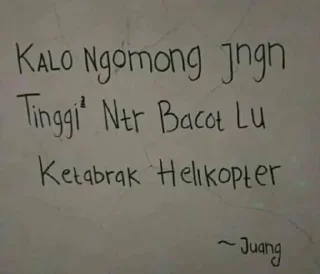 KALO Ngomong Jngn
Tinggi² Ntr Bacot Lu
Ketabrak Helikopter
~ Juang